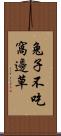 兔子不吃
窩邊草